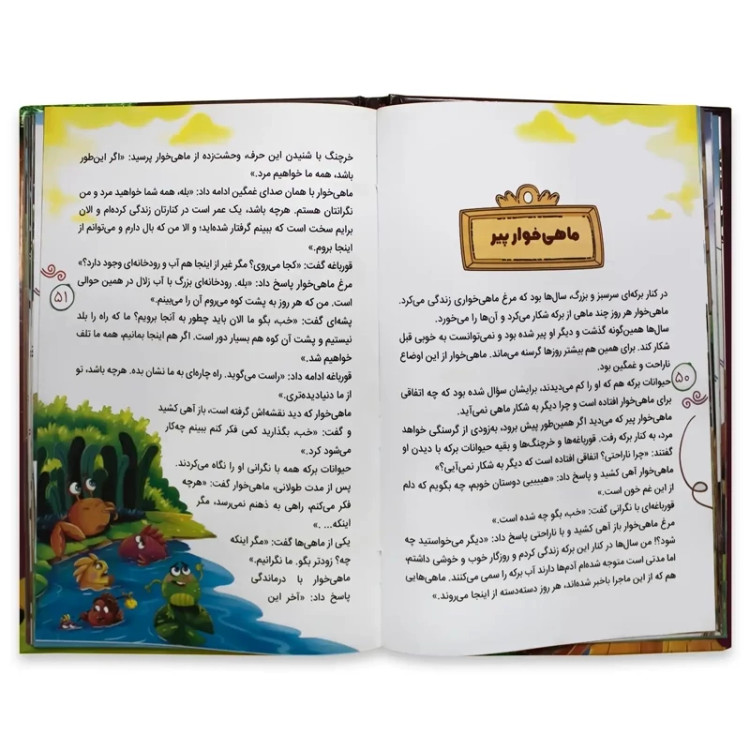 ماهی‌خوار پیر
در کنار برکه‌ای سرسبز و بزرگ، سال‌ها بود که مرغ ماهی‌خواری زندگی می‌کرد.
ماهی‌خوار هر روز چند ماهی از برکه شکار می‌کرد و آن‌ها را می‌خورد.
سال‌ها همین‌گونه گذشت و دیگر او پیر شده بود و نمی‌توانست به خوبی قبل
شکار کند. برای همین هم بیشتر روزها گرسنه می‌ماند. ماهی‌خوار از این اوضاع
ناراحت و غمگین بود.
حیوانات برکه هم که او را کم می‌دیدند، برایشان سؤال شده بود که چه اتفاقی
برای ماهی‌خوار افتاده است و چرا دیگر به شکار ماهی نمی‌آید.
ماهی‌خوار پیر که می‌دید اگر همین‌طور پیش برود، به‌زودی از گرسنگی خواهد
مرد، به کنار برکه رفت. قورباغه‌ها و خرچنگ‌ها و بقیه حیوانات برکه با دیدن او
گفتند: «چرا ناراحتی؟ اتفاقی افتاده است که دیگر به شکار نمی‌آیی؟»
ماهی‌خوار آهی کشید و پاسخ داد: «هیییی دوستان خوبم، چه بگویم که دلم
از این غم خون است.»
قورباغه‌ای با نگرانی گفت: «خب، بگو چه شده است.»
مرغ ماهی‌خوار باز آهی کشید و با ناراحتی پاسخ داد: «دیگر می‌خواستید چه
شود؟! من سال‌ها در کنار این برکه زندگی کردم و روزگار خوب و خوشی داشتم،
اما مدتی است متوجه شده‌ام آدم‌ها دارند آب برکه را سمی می‌کنند. ماهی‌هایی
هم که از این ماجرا باخبر شده‌اند، هر روز دسته‌دسته از اینجا می‌روند.»
۵۰
خرچنگ با شنیدن این حرف، وحشت‌زده از ماهی‌خوار پرسید: «اگر این‌طور
باشد، همه ما خواهیم مرد.»
ماهی‌خوار با همان صدای غمگین ادامه داد: «بله، همه شما خواهید مرد و من
نگرانتان هستم. هرچه باشد، یک عمر است در کنارتان زندگی کرده‌ام و الان
برایم سخت است که ببینم گرفتار شده‌اید؛ و الا من که بال دارم و می‌توانم از
اینجا بروم.»
قورباغه گفت: «کجا می‌روی؟ مگر غیر از اینجا هم آب و رودخانه‌ای وجود دارد؟»
مرغ ماهی‌خوار پاسخ داد: «بله. رودخانه‌ای بزرگ با آب زلال در همین حوالی
است. من که هر روز به پشت کوه می‌روم آن را می‌بینم.»
پشه‌ای گفت: «خب، بگو ما الان باید چطور به آنجا برویم؟ ما که راه را بلد
نیستیم و پشت آن کوه هم بسیار دور است. اگر هم اینجا بمانیم، همه ما تلف
خواهیم شد.»
قورباغه ادامه داد: «راست می‌گوید. راه چاره‌ای به ما نشان بده. هرچه باشد، تو
از ما دنیادیده‌تری.»
ماهی‌خوار که دید نقشه‌اش گرفته است، باز آهی کشید
و گفت: «خب، بگذارید کمی فکر کنم ببینم چه‌کار
می‌شود کرد.»
حیوانات برکه همه با نگرانی او را نگاه می‌کردند.
پس از مدت طولانی، ماهی‌خوار گفت: «هرچه
فکر می‌کنم، راهی به ذهنم نمی‌رسد، مگر
اینکه... .»
یکی از ماهی‌ها گفت: «مگر اینکه
چه؟ زودتر بگو. ما نگرانیم.»
ماهی‌خوار با درماندگی
پاسخ داد: «آخر این
۵۱